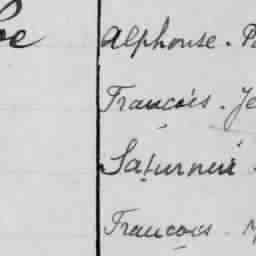 Alphonse. 
François. Je
Saturnin
François.